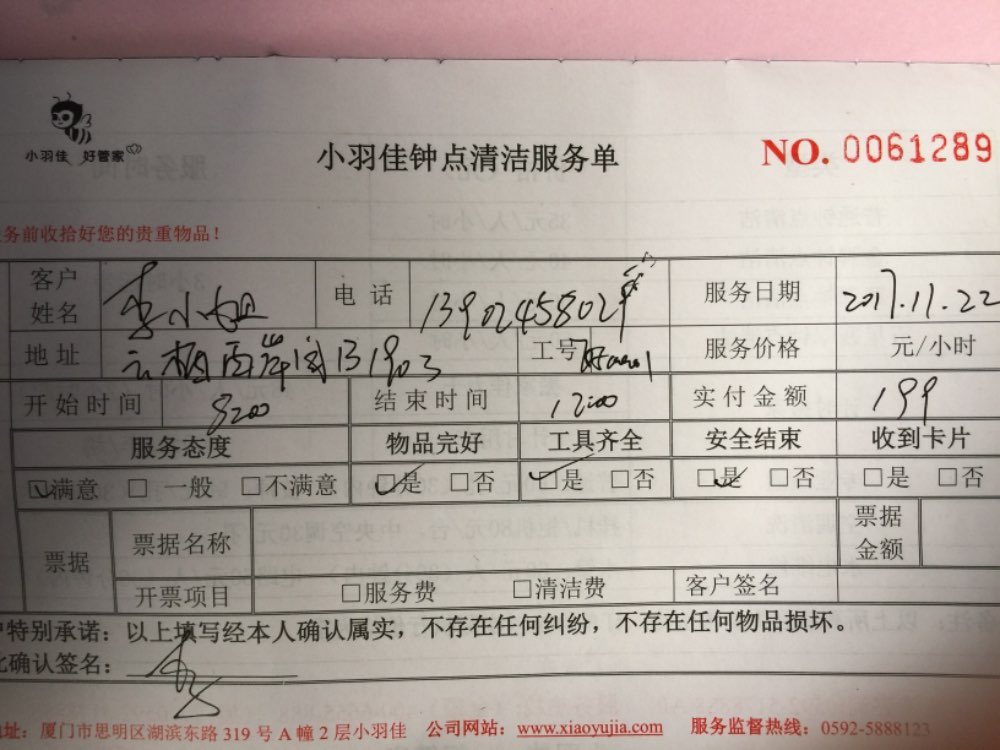 小羽佳 好管家
小羽佳钟点清洁服务单
NO. 0061289
务前收拾好您的贵重物品！
客户姓名 李小姐 电话 服务日期 2017.11.22
地址 工号 服务价格 元/小时
开始时间 8:00 结束时间 12:00 实付金额 199
服务态度 物品完好 工具齐全 安全结束 收到卡片
☑满意 □一般 □不满意 ☑是 □否 ☑是 □否 ☑是 □否 □是 □否
票据 票据名称 票据金额
开票项目 □服务费 □清洁费 客户签名
特别承诺：以上填写经本人确认属实，不存在任何纠纷，不存在任何物品损坏。
确认签名：
址：厦门市思明区湖滨东路 319 号 A 幢 2 层小羽佳 公司网站：www.xiaoyujia.com 服务监督热线：0592-5888123